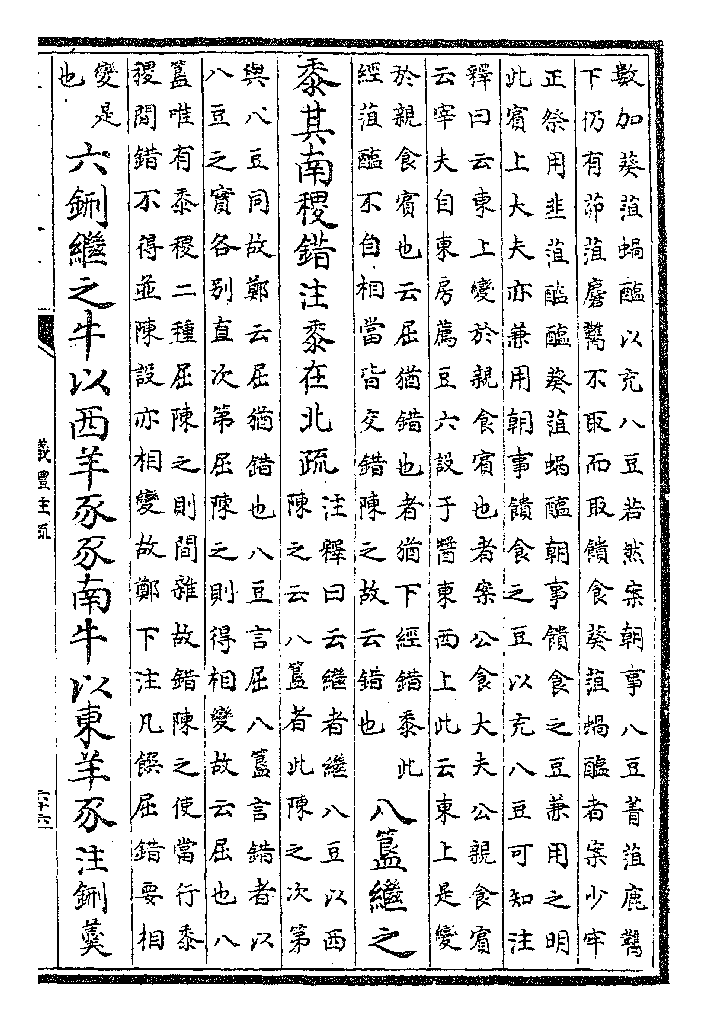 數加葵菹蝸醢以充八豆若然案朝事八豆菁菹鹿臡
下仍有茆菹麏臡不取而取饋食葵菹蝸醢者案少牢
正祭用韭菹醓醢葵菹蝸醢朝事饋食之豆兼用之明
此賓上大夫亦兼用朝事饋食之豆以充八豆可知注
釋曰云東上變於親食賓也者案公食大夫公親食賓
云宰夫自東房薦豆六設于醬東西上此云東上是變
於親食賓也云屈猶錯也者猶下經錯黍此
經菹醢不自相當皆交錯陳之故云錯也
八簋繼之
黍其南稷錯注黍在北疏
注釋曰云繼者繼八豆以西
陳之云八簋者此陳之次第
與八豆同故鄭云屈猶錯也八豆言屈八簋言錯者以
八豆之實各别直次第屈陳之則得相變故云屈也八
簋唯有黍稷二種屈陳之則間雜故錯陳之使當行黍
稷間錯不得並陳設亦相變故鄭下注凡饌屈錯要相
變是
也
六鉶繼之牛以西羊豕豕南牛以東羊豕注鉶羹
儀禮注疏